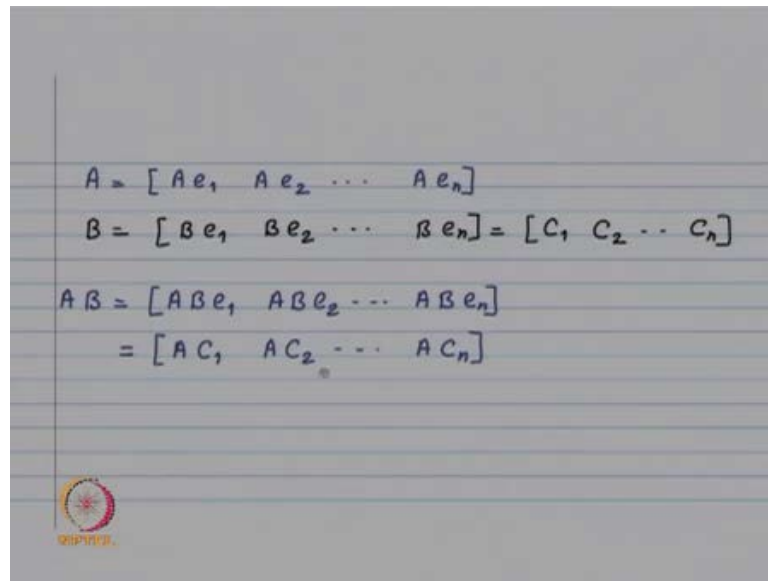 A = [ A e₁ A e₂ ... A eₙ]
B = [ B e₁ B e₂ ... B eₙ] = [ C₁ C₂ .. Cₙ]
A B = [ A B e₁ A B e₂ ... A B eₙ]
= [ A C₁ A C₂ ... A Cₙ]